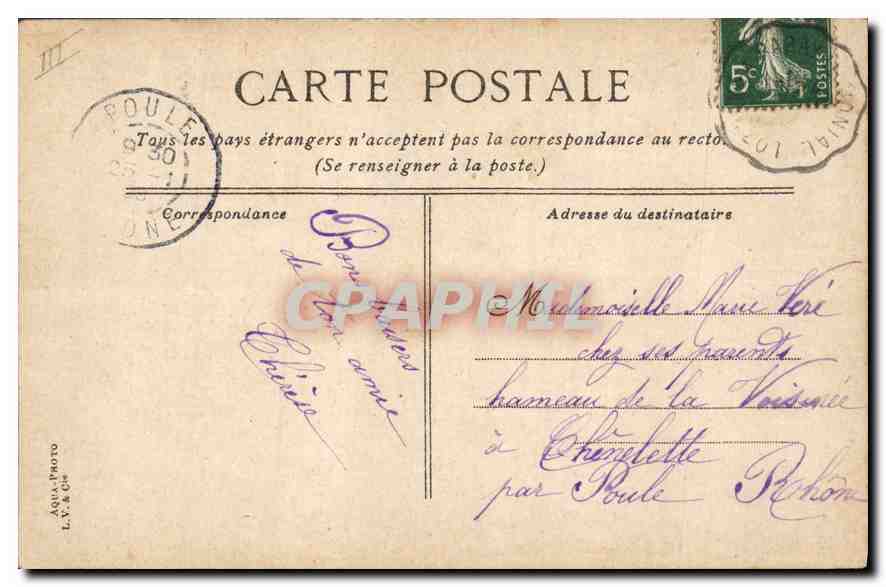 III
CARTE POSTALE
5c
POSTES
POULE
9 30
RHÔNE
Tous les pays étrangers n'acceptent pas la correspondance au recto.
(Se renseigner à la poste.)
Correspondance
Adresse du destinataire
Bons baisers
de ton amie
Thérèse
Mademoiselle Marie Veré
chez ses parents
hameau de la Voisinée
à Chênelette
par Poule Rhône
CPAPHIL
AQUA-PHOTO
L. V. & Cie